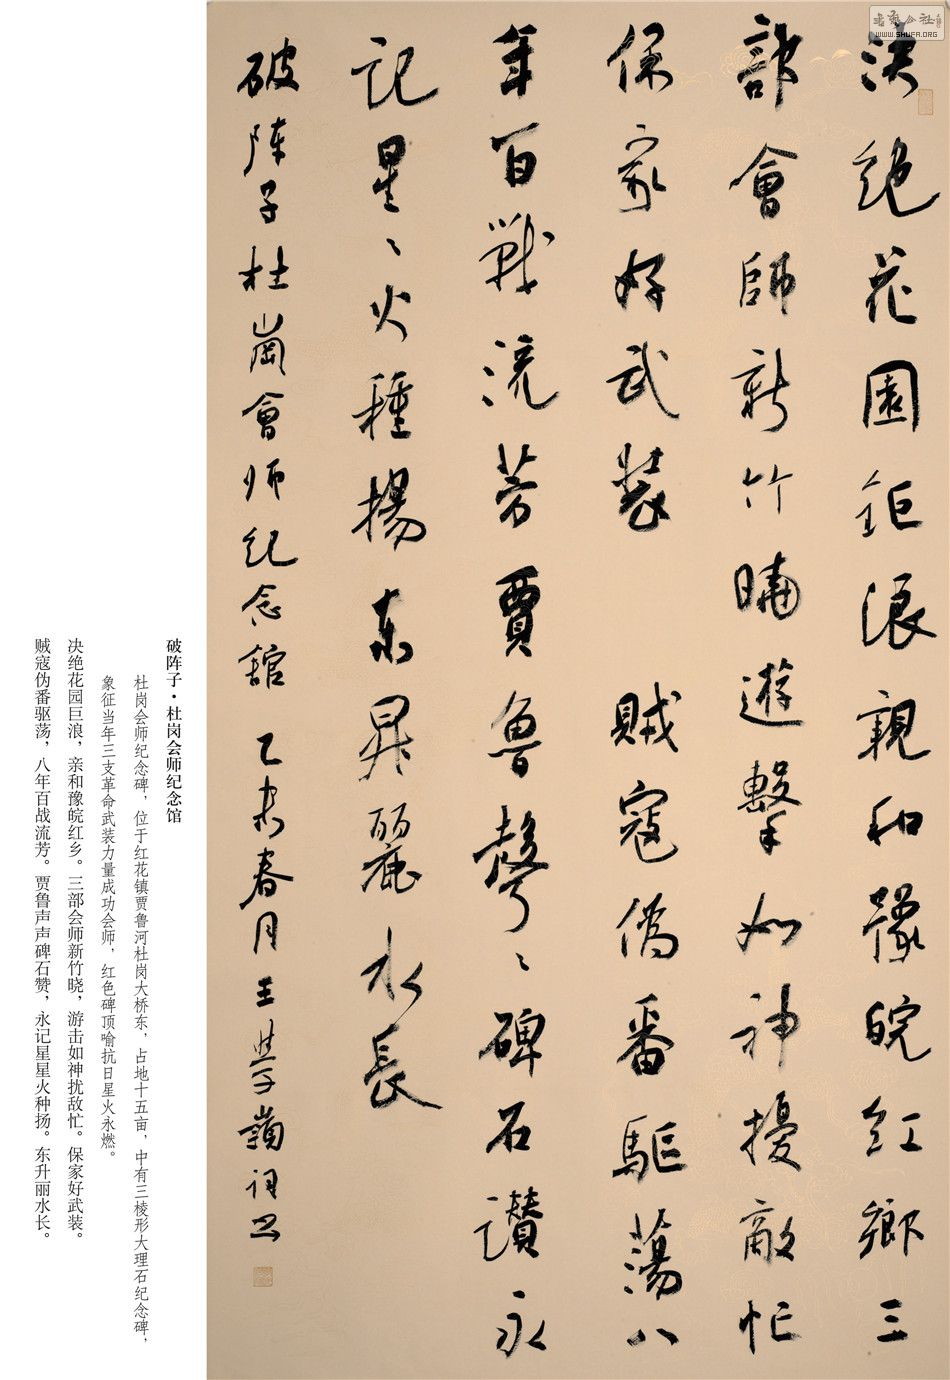 決絶花園鉅浪親和豫皖紅鄉三
部會師新竹曉遊擊如神擾敵忙
保家好武裝 賊寇偽番驅蕩八
年百戰流芳賈魯聲〻碑石讚永
記星〻火種揚东昇麗水長
破陣子杜崗會师纪念館 乙未春月王學嶺词书
破阵子·杜岗会师纪念馆
杜岗会师纪念碑，位于红花镇贾鲁河杜岗大桥东，占地十五亩，中有三棱形大理石纪念碑，
象征当年三支革命武装力量成功会师，红色碑顶喻抗日星火永燃。
决绝花园巨浪，亲和豫皖红乡。三部会师新竹晓，游击如神扰敌忙。保家好武装。
贼寇伪番驱荡，八年百战流芳。贾鲁声声碑石赞，永记星星火种扬。东升丽水长。
WWW.SHUFA.ORG